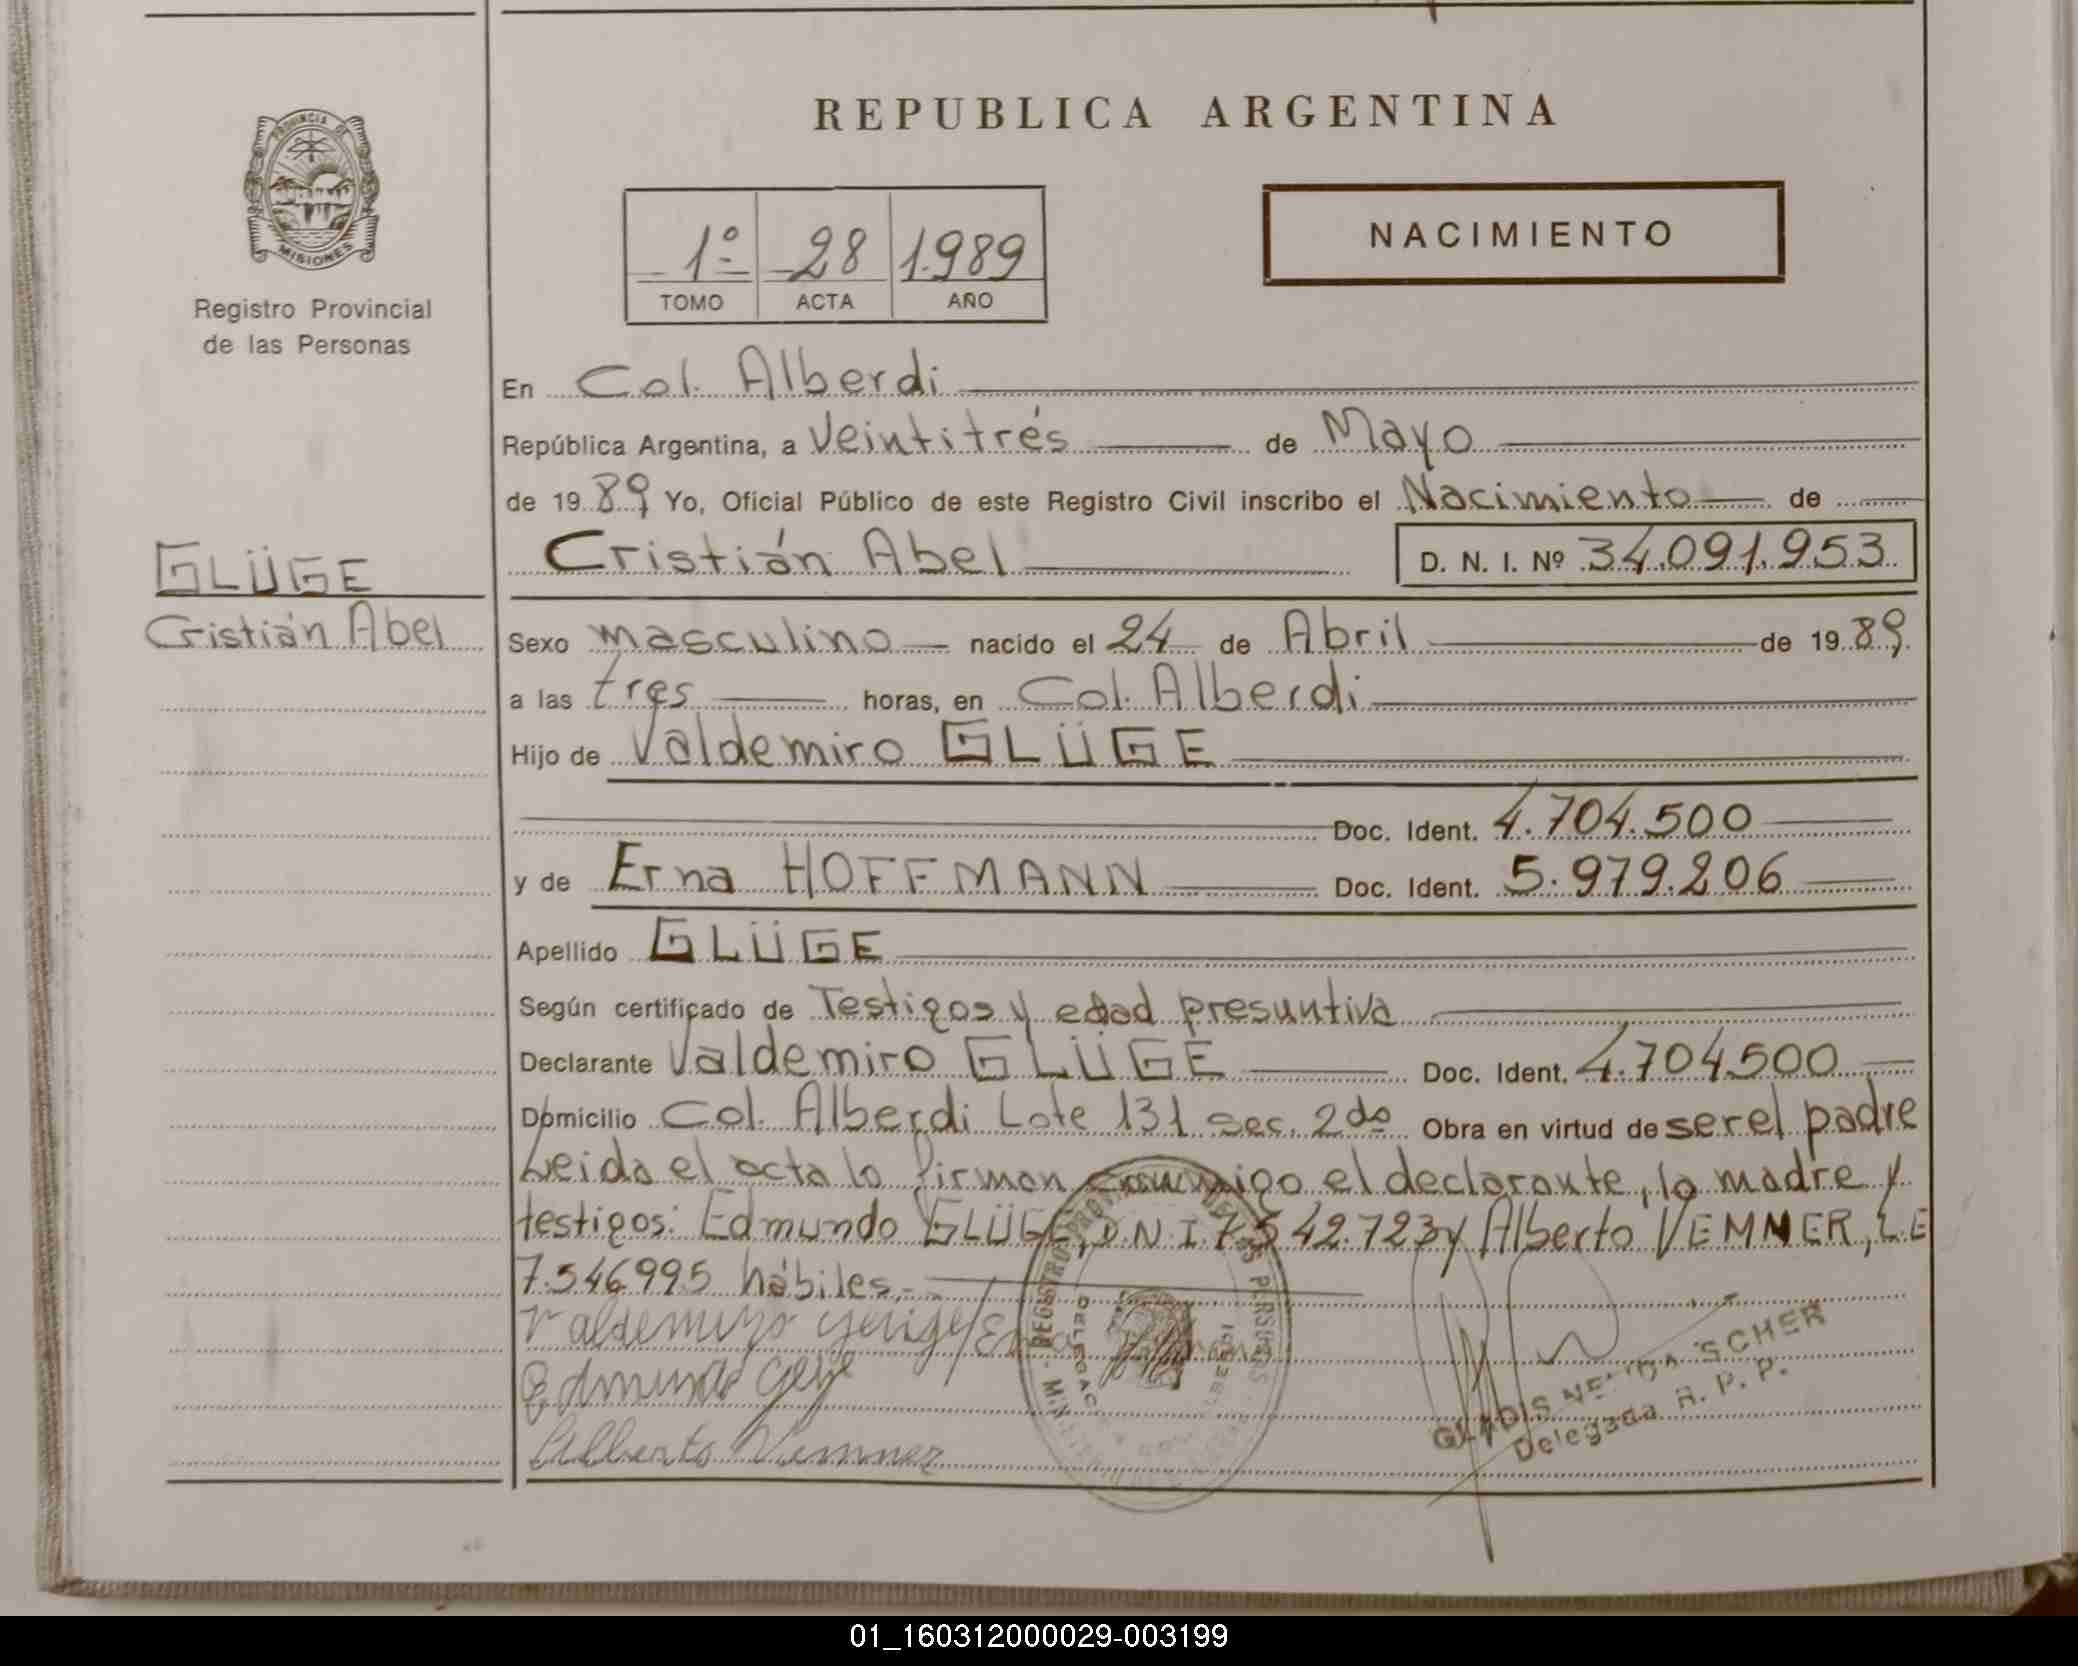 REPUBLICA ARGENTINA
PROVINCIA DE
MISIONES
Registro Provincial
de las Personas
1º 28 1.989
TOMO ACTA AÑO
NACIMIENTO
En Col. Alberdi
República Argentina, a Veintitrés de Mayo
de 1989 Yo, Oficial Público de este Registro Civil inscribo el Nacimiento de
Cristián Abel D. N. I. Nº 34.091.953
GLÜGE
Cristián Abel
Sexo masculino nacido el 24 de Abril de 1989
a las tres horas, en Col. Alberdi
Hijo de Valdemiro GLÜGE
Doc. Ident. 4.704.500
y de Erna HOFFMANN Doc. Ident. 5.979.206
Apellido GLÜGE
Según certificado de Testigos y edad presuntiva
Declarante Valdemiro GLÜGE Doc. Ident. 4.704500
Domicilio Col. Alberdi Lote 131 Sec. 2da Obra en virtud de ser el padre
Leida el acta la firman conmigo el declarante, la madre y
testigos: Edmundo GLÜGE, D.N.I 7.542.723 y Alberto VEMMER, L.E
7.546995 hábiles.-
Edmundo
Alberto Vemmer
GLADIS SCHER
Delegada R. P. P.
01_160312000029-003199